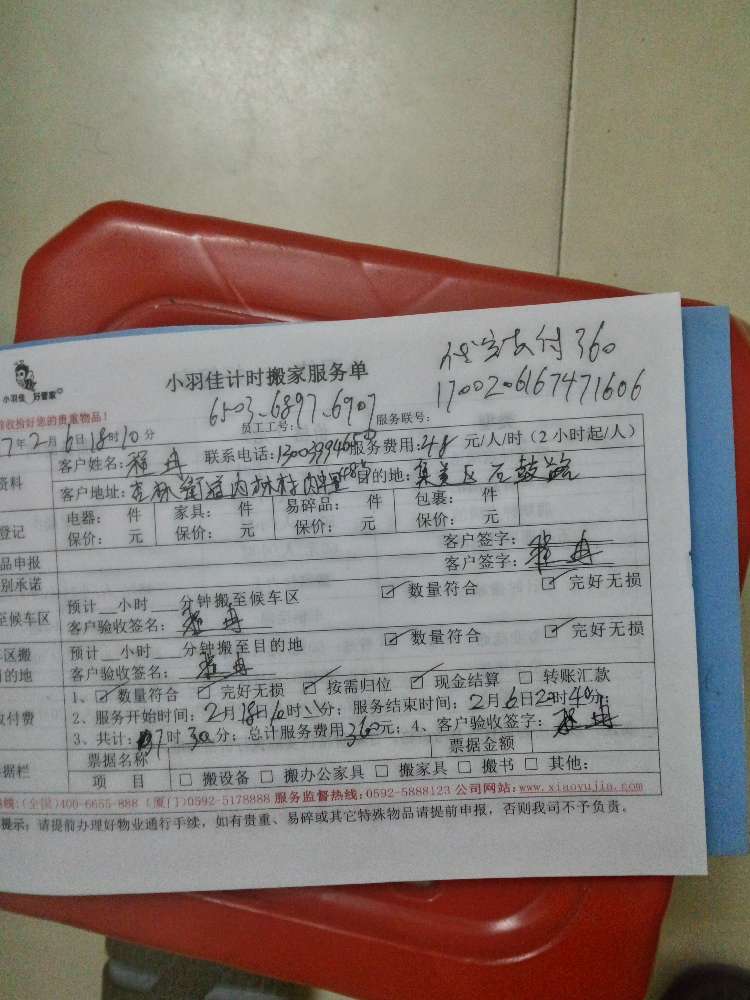 小羽佳 好管家
小羽佳计时搬家服务单
支付360
1700206167471606
6503、6897、6907
员工工号：
服务联号：
验收给好您的贵重物品！
7年2月6日18时10分
资料
客户姓名：程冉 联系电话： 服务费用：48元/人/时（2小时起/人）
客户地址： 目的地：集美区石鼓路
登记
电器： 件 家具： 件 易碎品： 件 包裹： 件
保价： 元 保价： 元 保价： 元 保价： 元
品申报
客户签字：程冉
别承诺
客户签字：程冉
至候车区
预计__小时__分钟搬至候车区 ☑数量符合 ☑完好无损
客户验收签名：程冉
区搬
预计__小时__分钟搬至目的地 ☑数量符合 ☑完好无损
目的地
客户验收签名：程冉
付费
1、☑数量符合 ☑完好无损 ☑按需归位 ☑现金结算 □转账汇款
2、服务开始时间：2月 服务结束时间：2月6日20时40分；
3、共计：7时30分；总计服务费用360元；4、客户验收签字：程冉
据栏
票据名称 票据金额
项 目 □搬设备 □搬办公家具 □搬家具 □搬书 □其他：
线：(全国)400-6655-888 (厦门)0592-5178888 服务监督热线：0592-5888123 公司网站：www.xiaoyujia.com
提示：请提前办理好物业通行手续，如有贵重、易碎或其它特殊物品请提前申报，否则我司不予负责。